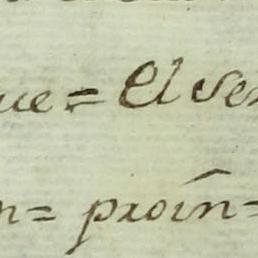 ue = El Se
n = proin =